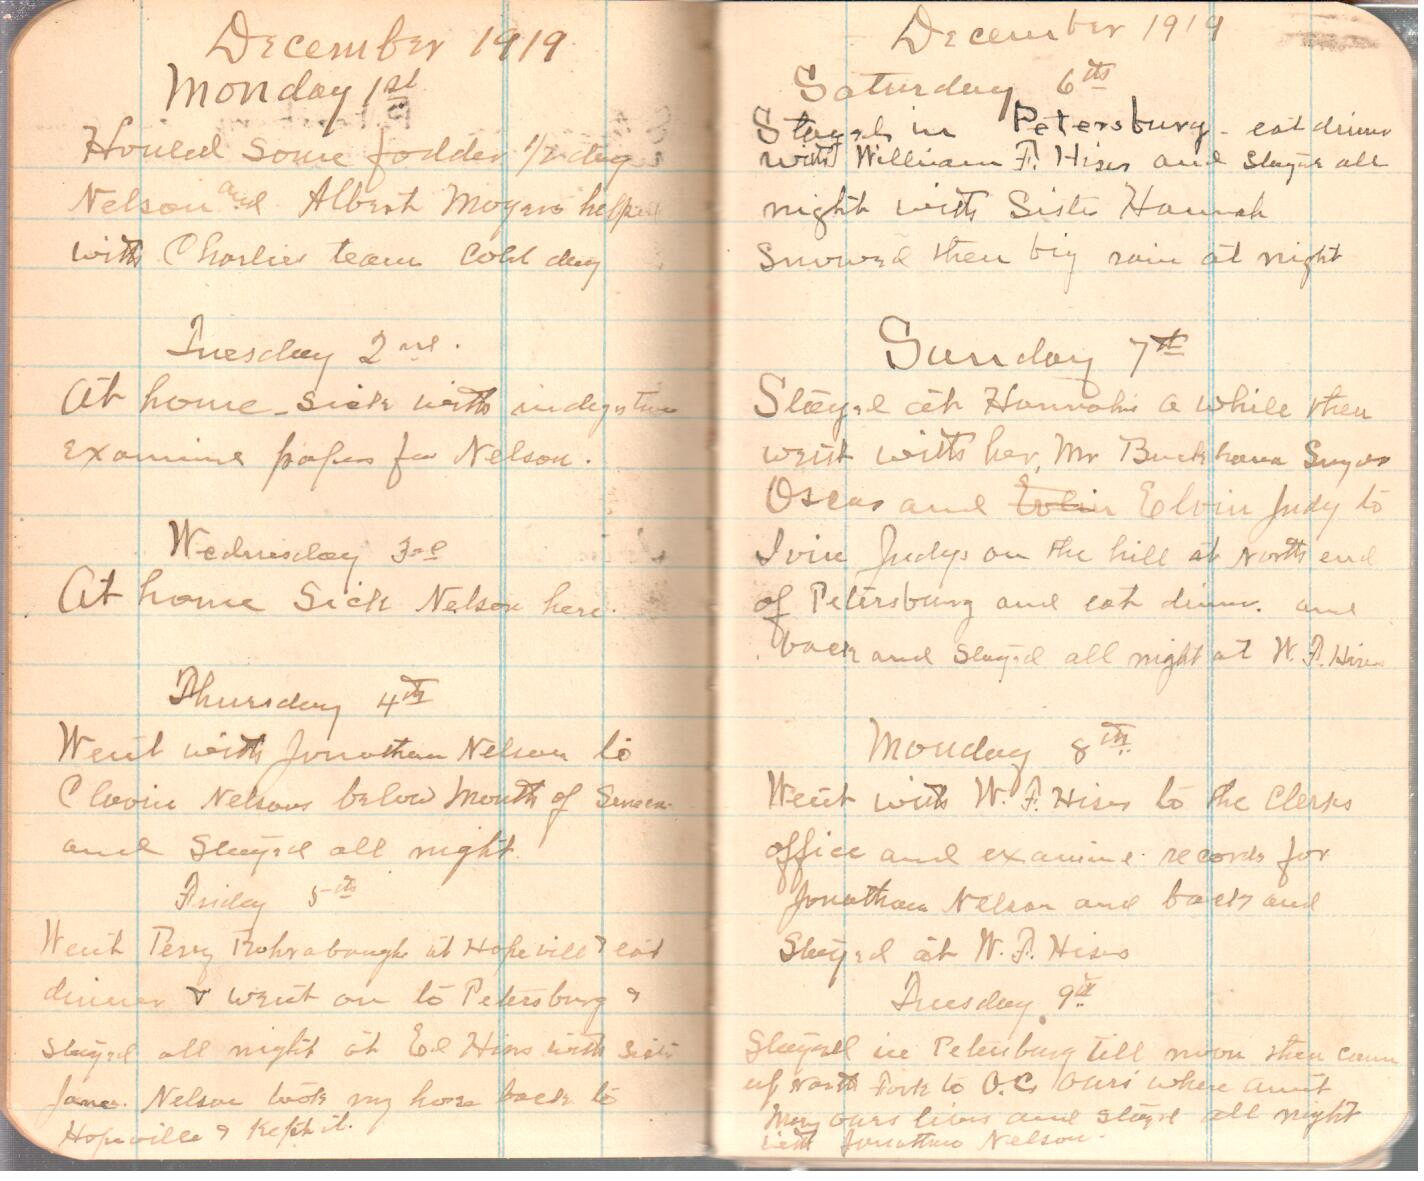 December 1919
Monday 1st
Housed some fodder 1/2 day
Nelson and Albert Moyers help
with Charlies team cold day
Tuesday 2nd.
At home - sick with indigestion
examine papers for Nelson.
Wednesday 3rd
At home Sick Nelson here.
Thursday 4th
Went with Jonathan Nelson to
Clovin Nelsons below Mouth of Seneca
and Stayed all night
Friday 5th
Went Perry Rohrabaugh at Hopevill & eat
dinner & went on to Petersburg &
stayed all night at Ed Hines with Sister
Jane. Nelson took my horse back to
Hopeville & Kept it.
December 1919
Saturday 6th
Stayed in Petersburg - eat dinner
with William F. Hises and stayed all
night with Sister Hannah
Snowed then big rain at night
Sunday 7th
Stayed at Hannahs a while then
went with her, Mr Buckhana
Oscar and Evlin Elvin Judy to
Ivin Judys on the hill at North end
of Petersburg and eat dinner. and
back and stayed all night at W. F. Hises
Monday 8th
Went with W. F. Hises to the Clerks
office and examine records for
Jonathan Nelson and back and
Stayed at W. F. Hises
Tuesday 9th
Stayed in Petersburg till noon then came
up North Fork to O.C. Ours where aunt
Mary ours lives and stayed all night
with Jonathan Nelson.